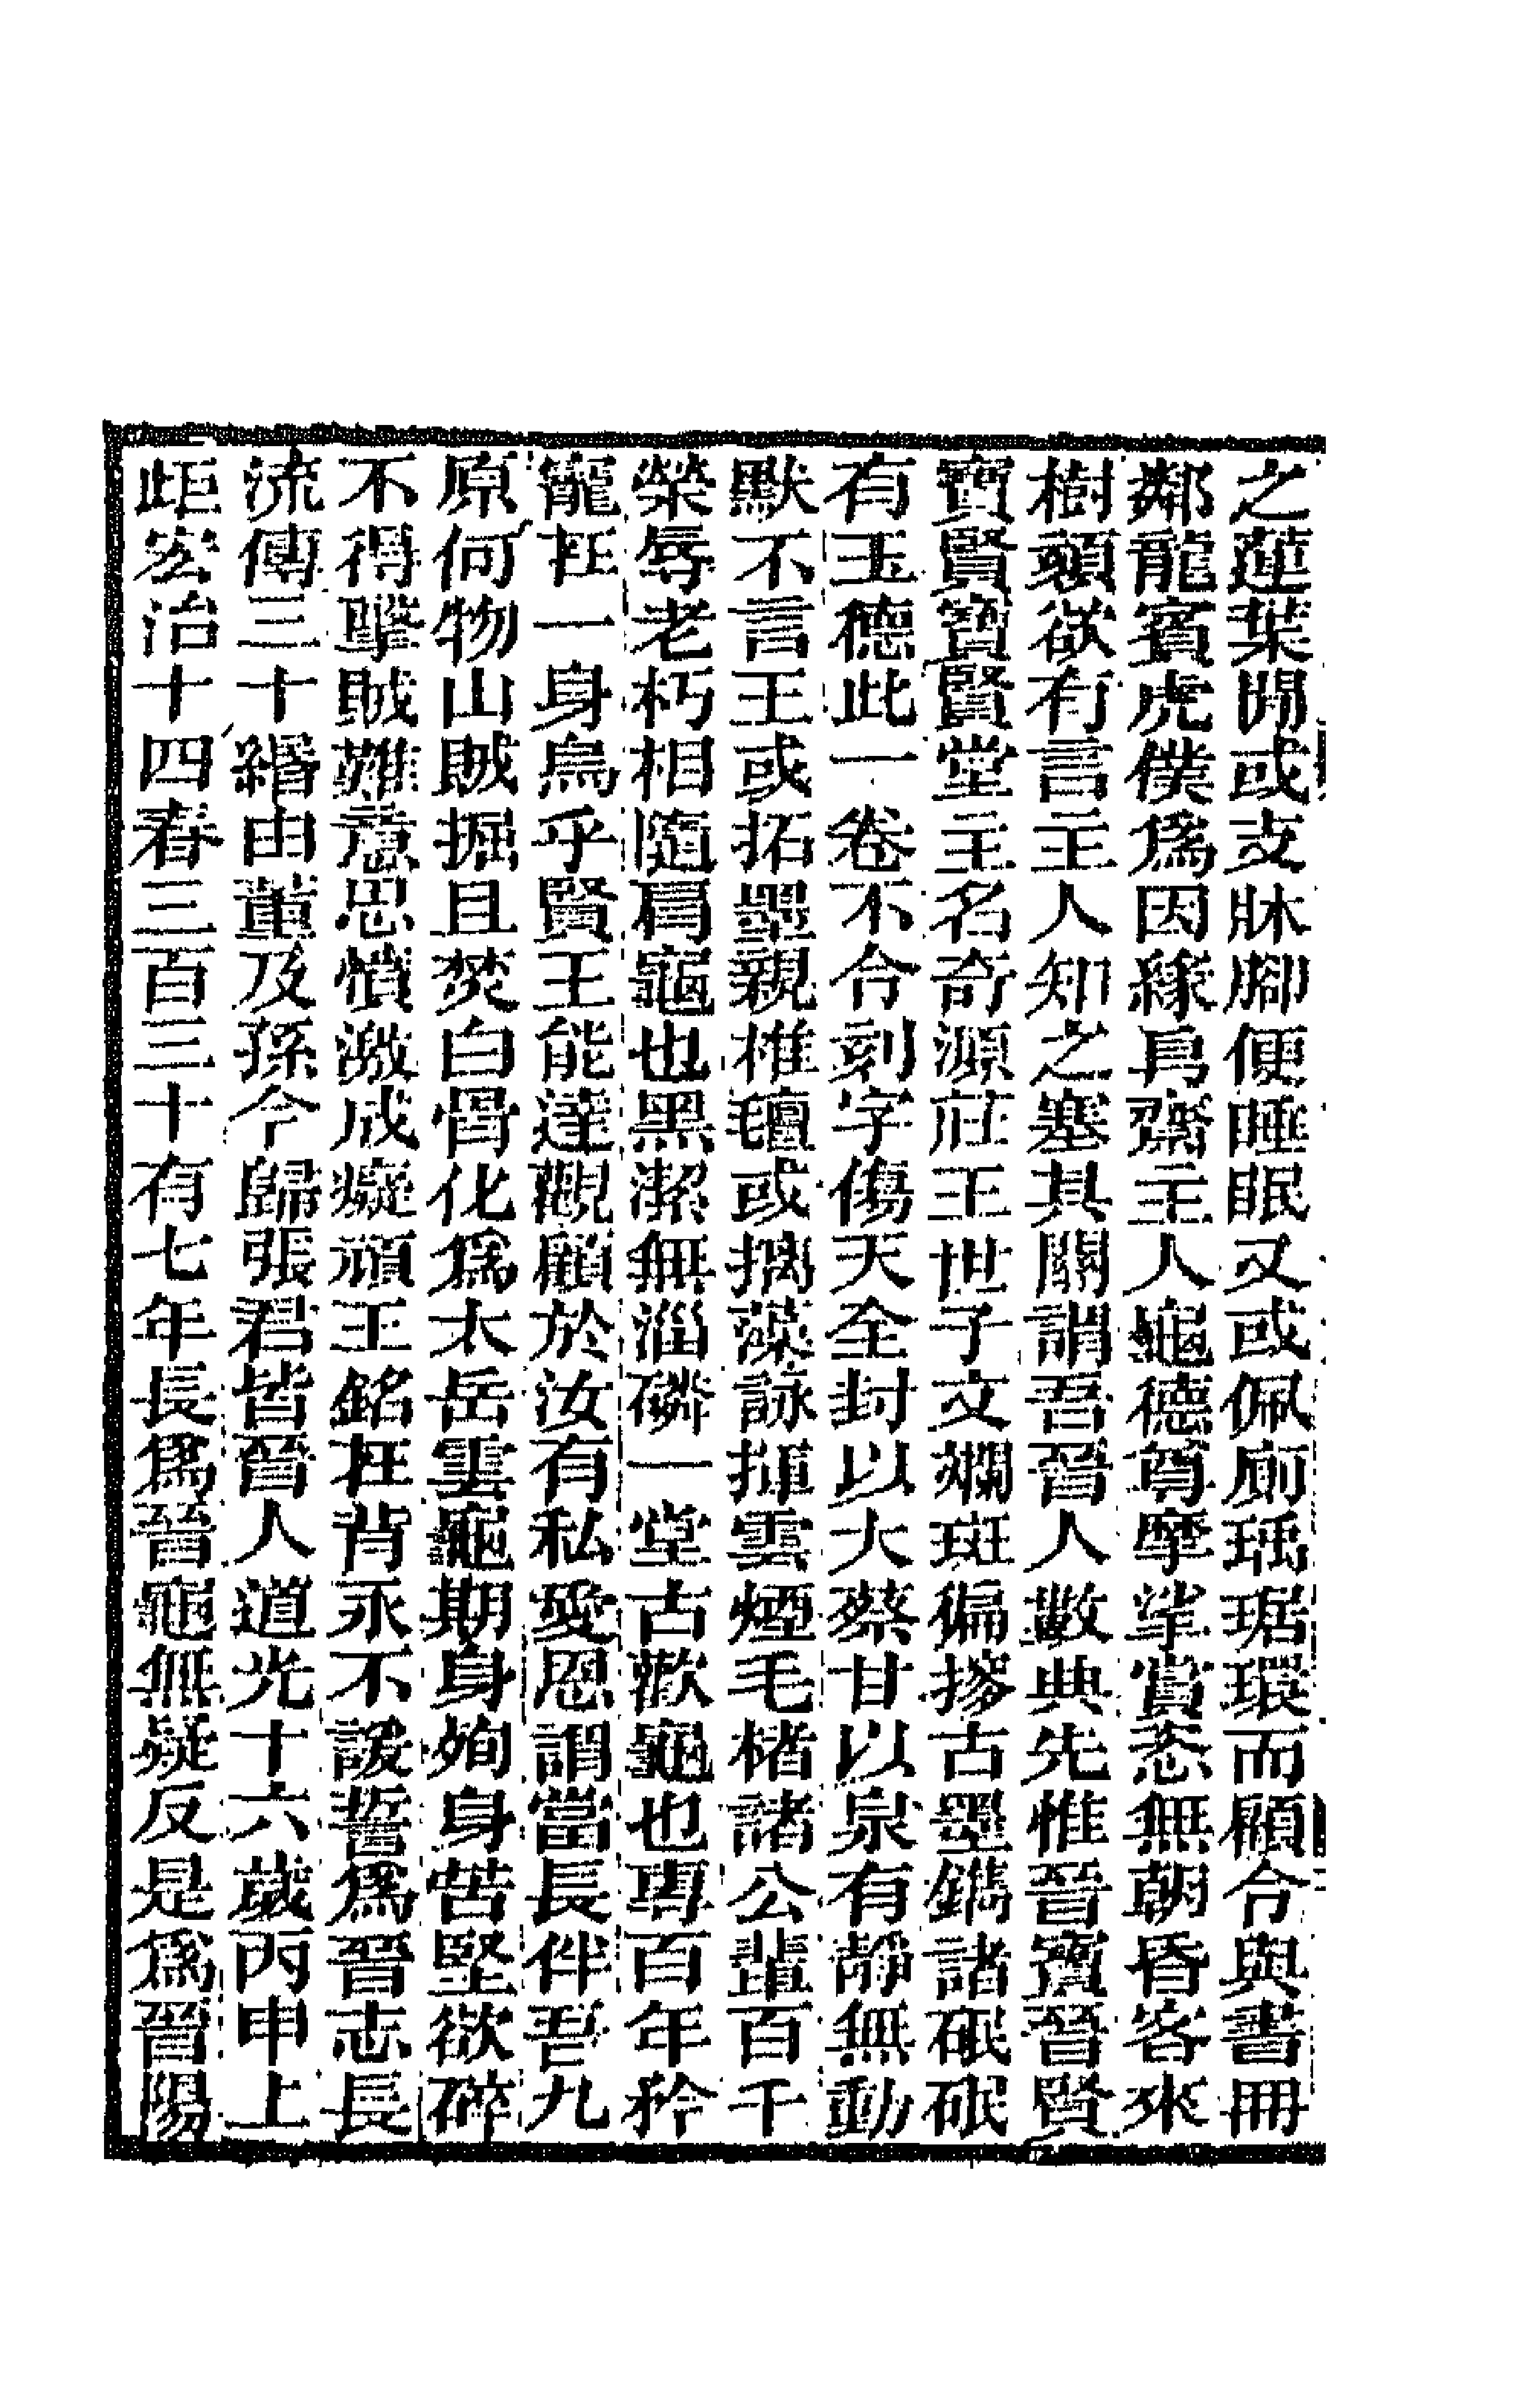 之蓮葉間或支牀腳便睡眠又或佩廁瑀琚環而顧令與書冊
鄰龍賓虎僕為因緣舄齋主人龜德尊摩挲賞悉無朝昏客來
樹頭欲有言主人知之塞其關謂吾晉人數典先惟晉寶晉賢
寶賢寶賢堂主名奇源莊王世子文斕斑徧摉古墨鐫諸砥砥
有玉德此一卷不令刻字傷天全封以大蔡甘以泉有靜無動
默不言王或拓墨親椎氊或摛藻詠揮雲煙毛楮諸公輩百千
榮辱老朽相隨肩龜也黑潔無淄磷一堂古歡龜也專百年矜
寵在一身烏乎賢王能達觀顧於汝有私愛恩謂當長伴吾九
原何物山賊掘且焚白骨化為太岳雲龜期身殉身苦堅欲碎
不得擊賊難意忠憤激成癡頑王銘在背永不諼誓為晉志長
流傳三十緡由董及孫今歸張君皆晉人道光十六歲丙申上
歫宏治十四春三百三十有七年長為晉龜無疑反是為晉陽